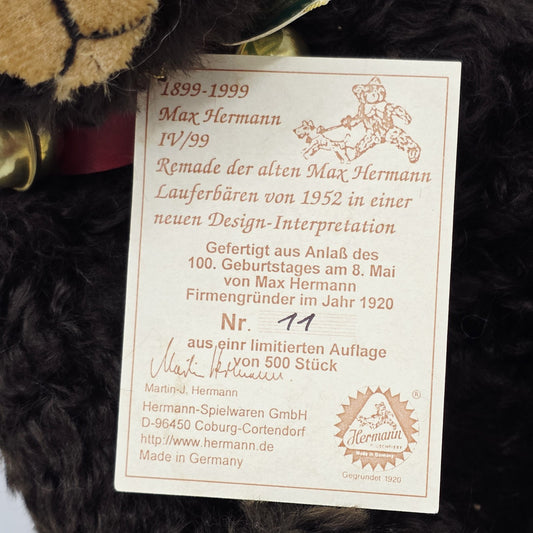 1899-1999
Max Hermann
IV/99
Remade der alten Max Hermann
Lauferbären von 1952 in einer
neuen Design-Interpretation
Gefertigt aus Anlaß des
100. Geburtstages am 8. Mai
von Max Hermann
Firmengründer im Jahr 1920
Nr. 11
aus einr limitierten Auflage
von 500 Stück
Martin Hermann.
Martin-J. Hermann
Hermann-Spielwaren GmbH
D-96450 Coburg-Cortendorf
http://www.hermann.de
Made in Germany
®
Hermann
Made in Germany
Gegründet 1920